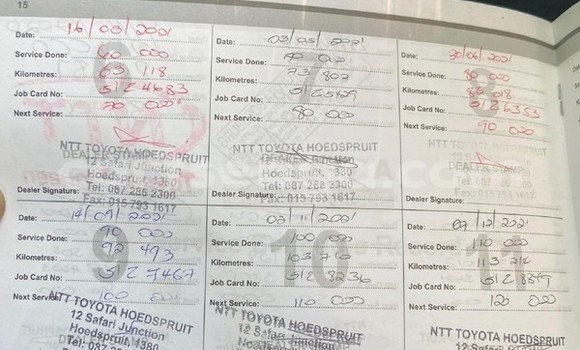 15
Date: 16/03/2021
Service Done: 60 000
Kilometres: 63 118
Job Card No: 5124683
Next Service: 70 000
NTT TOYOTA HOEDSPRUIT
DEALER STAMP
12 Safari Junction
Hoedspruit, 1380
Tel: 087 286 2300
Fax: 015 793 1617
Dealer Signature:
Date: 03/05/2021
Service Done: 70 000
Kilometres: 73 802
Job Card No:
Next Service: 80 000
NTT TOYOTA HOEDSPRUIT
Hoedspruit, 1380
Tel: 087 286 2300
Fax: 015 793 1617
Dealer Signature:
Date: 30/06/2021
Service Done: 80 000
Kilometres: 85 018
Job Card No: 5126353
Next Service: 90 000
NTT TOYOTA HOEDSPRUIT
DEALER STAMP
Hoedspruit, 1380
Tel: 087 286 2300
Fax: 015 793 1617
Dealer Signature:
9
Date: 14/09/2021
Service Done: 90 000
Kilometres: 92 493
Job Card No: 5127467
Next Service: 100 000
NTT TOYOTA HOEDSPRUIT
12 Safari Junction
Hoedspruit, 1380
10
Date: 02/11/2021
Service Done: 100 000
Kilometres: 103 710
Job Card No: 5128236
Next Service: 110 000
NTT TOYOTA HOEDSPRUIT
12 Safari Junction
Hoedspruit, 1380
Date: 07/12/2021
Service Done: 110 000
Kilometres: 113 214
Job Card No: 5128849
Next Service: 120 000
NTT TOYOTA HOEDSPRUIT
12 Safari Junction